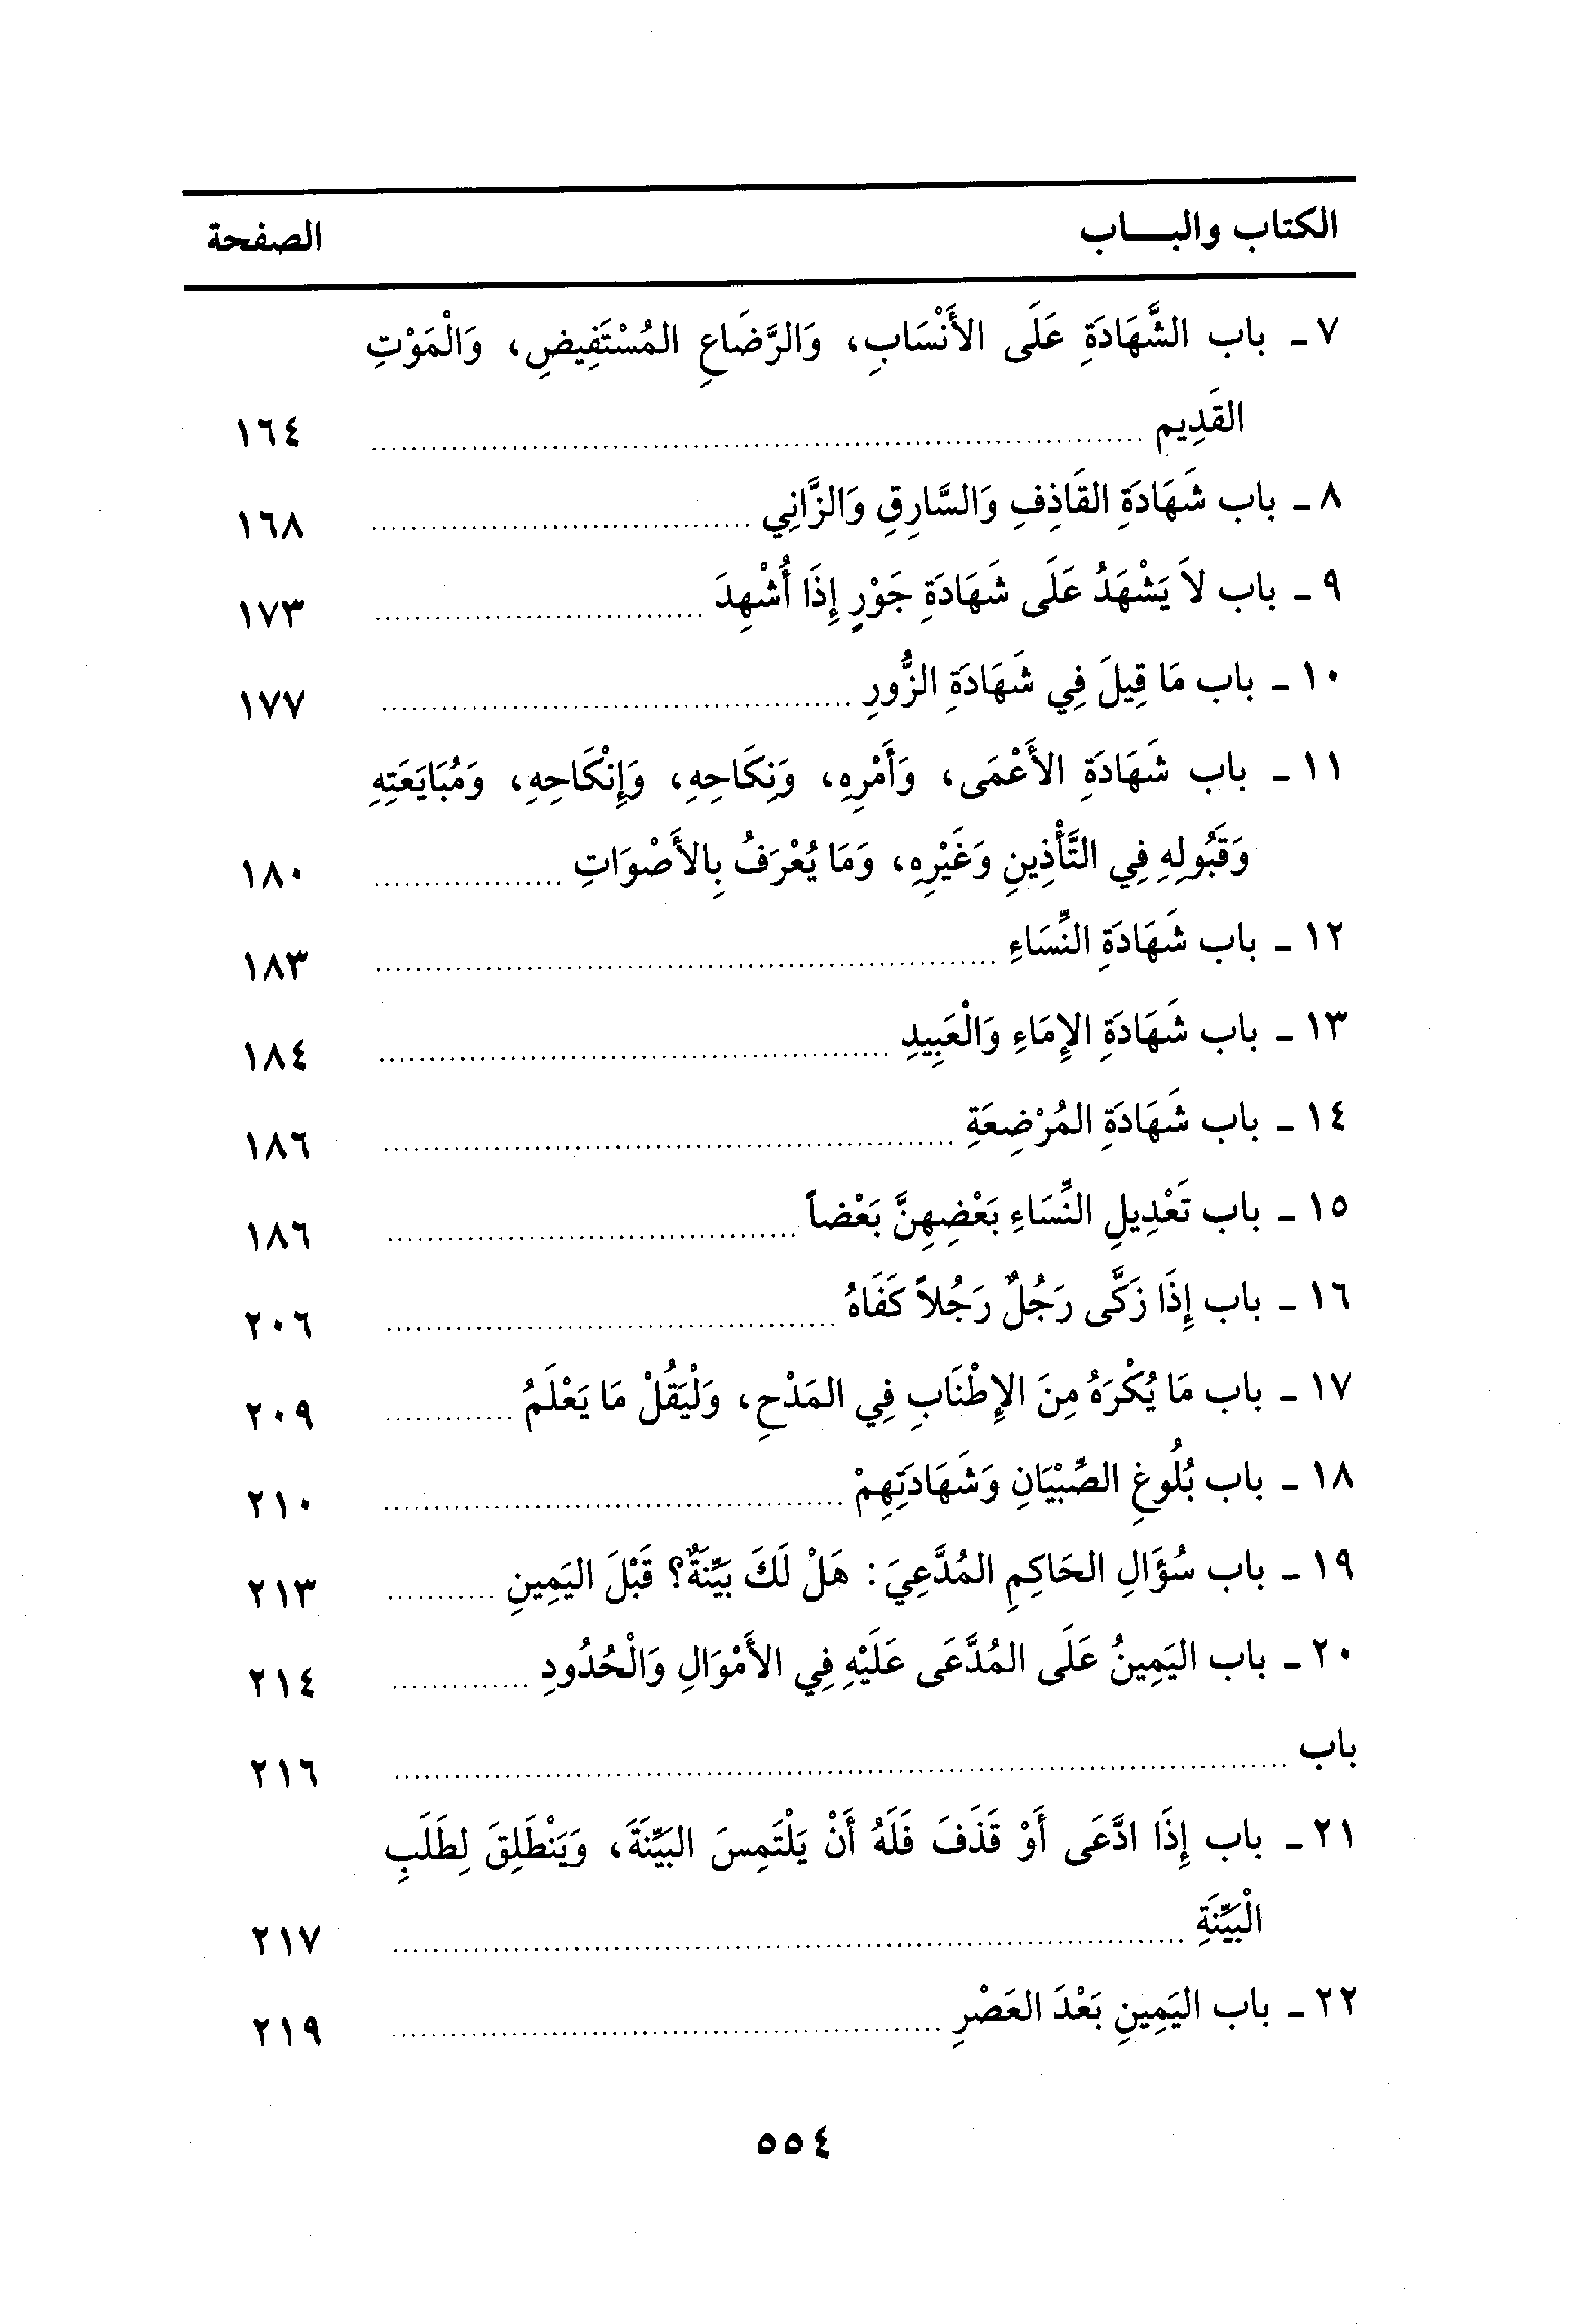 الكتاب والبـــاب الصفحة
٧ ـ باب الشَّهَادَةِ عَلَى الأَنْسَابِ، وَالرَّضَاعِ المُسْتَفِيضِ، وَالْمَوْتِ
القَدِيم ........ ١٦٤
٨ ـ باب شَهَادَةِ القَاذِفِ وَالسَّارِقِ وَالزَّانِي ........ ١٦٨
٩ ـ باب لاَ يَشْهَدُ عَلَى شَهَادَةِ جَوْرٍ إِذَا أُشْهِدَ ........ ١٧٣
١٠ ـ باب مَا قِيلَ فِي شَهَادَةِ الزُّورِ ........ ١٧٧
١١ ـ باب شَهَادَةِ الأَعْمَى، وَأَمْرِهِ، وَنِكَاحِهِ، وَإِنْكَاحِهِ، وَمُبَايَعَتِهِ
وَقَبُولِهِ فِي التَّأْذِينِ وَغَيْرِهِ، وَمَا يُعْرَفُ بِالأَصْوَاتِ ........ ١٨٠
١٢ ـ باب شَهَادَةِ النِّسَاءِ ........ ١٨٣
١٣ ـ باب شَهَادَةِ الإِمَاءِ وَالْعَبِيدِ ........ ١٨٤
١٤ ـ باب شَهَادَةِ المُرْضِعَةِ ........ ١٨٦
١٥ ـ باب تَعْدِيلِ النِّسَاءِ بَعْضِهِنَّ بَعْضاً ........ ١٨٦
١٦ ـ باب إِذَا زَكَّى رَجُلٌ رَجُلاً كَفَاهُ ........ ٢٠٦
١٧ ـ باب مَا يُكْرَهُ مِنَ الإِطْنَابِ فِي المَدْحِ، وَلْيَقُلْ مَا يَعْلَمُ ........ ٢٠٩
١٨ ـ باب بُلُوغِ الصِّبْيَانِ وَشَهَادَتِهِمْ ........ ٢١٠
١٩ ـ باب سُؤَالِ الحَاكِمِ المُدَّعِيَ: هَلْ لَكَ بَيِّنَةٌ؟ قَبْلَ اليَمِينِ ........ ٢١٣
٢٠ ـ باب اليَمِينُ عَلَى المُدَّعَى عَلَيْهِ فِي الأَمْوَالِ وَالْحُدُودِ ........ ٢١٤
باب ........ ٢١٦
٢١ ـ باب إِذَا ادَّعَى أَوْ قَذَفَ فَلَهُ أَنْ يَلْتَمِسَ البَيِّنَةَ، وَيَنْطَلِقَ لِطَلَبِ
الْبَيِّنَةِ ........ ٢١٧
٢٢ ـ باب اليَمِينِ بَعْدَ العَصْرِ ........ ٢١٩
٥٥٤